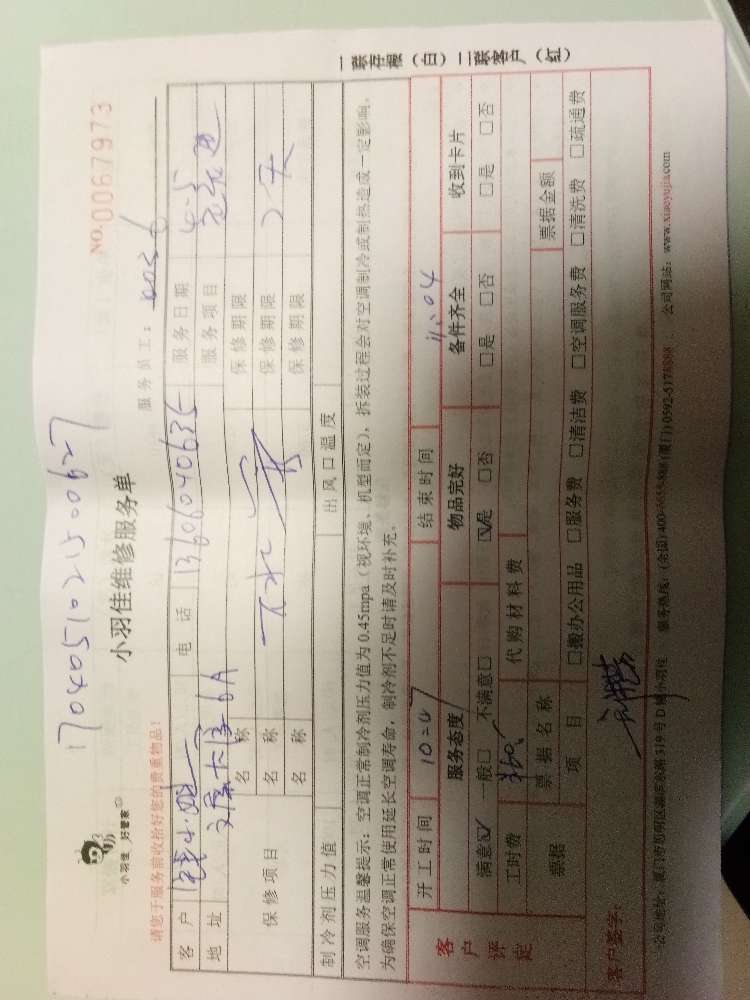 1704051021500627
小羽佳 好管家
小羽佳维修服务单
NO.0067973
请您于服务前收拾好您的贵重物品!
服务员工:
客户 电话 13606040635 服务日期 4.5
地址 6A 服务项目
保修项目 名称 保修期限
名称 保修期限
名称 保修期限
制冷剂压力值 出风口温度
空调服务温馨提示:空调正常制冷剂压力值为0.45mpa(视环境、机型而定),拆装过程会对空调制冷或制热造成一定影响,
为确保空调正常使用延长空调寿命,制冷剂不足时请及时补充。
一联存根(白)二联客户(红)
客户评定
开工时间 10:27 结束时间 11:04
服务态度 物品完好 备件齐全 收到卡片
满意☑ 一般□ 不满意□ ☑是 □否 □是 □否 □是 □否
工时费 360 代购材料费
票据 票据名称 票据金额
项目 □搬办公用品 □服务费 □清洁费 □空调服务费 □清洗费 □疏通费
客户签字:
服务热线:(厦门)0592-5178888 公司网站:www.xiaoyujia.com